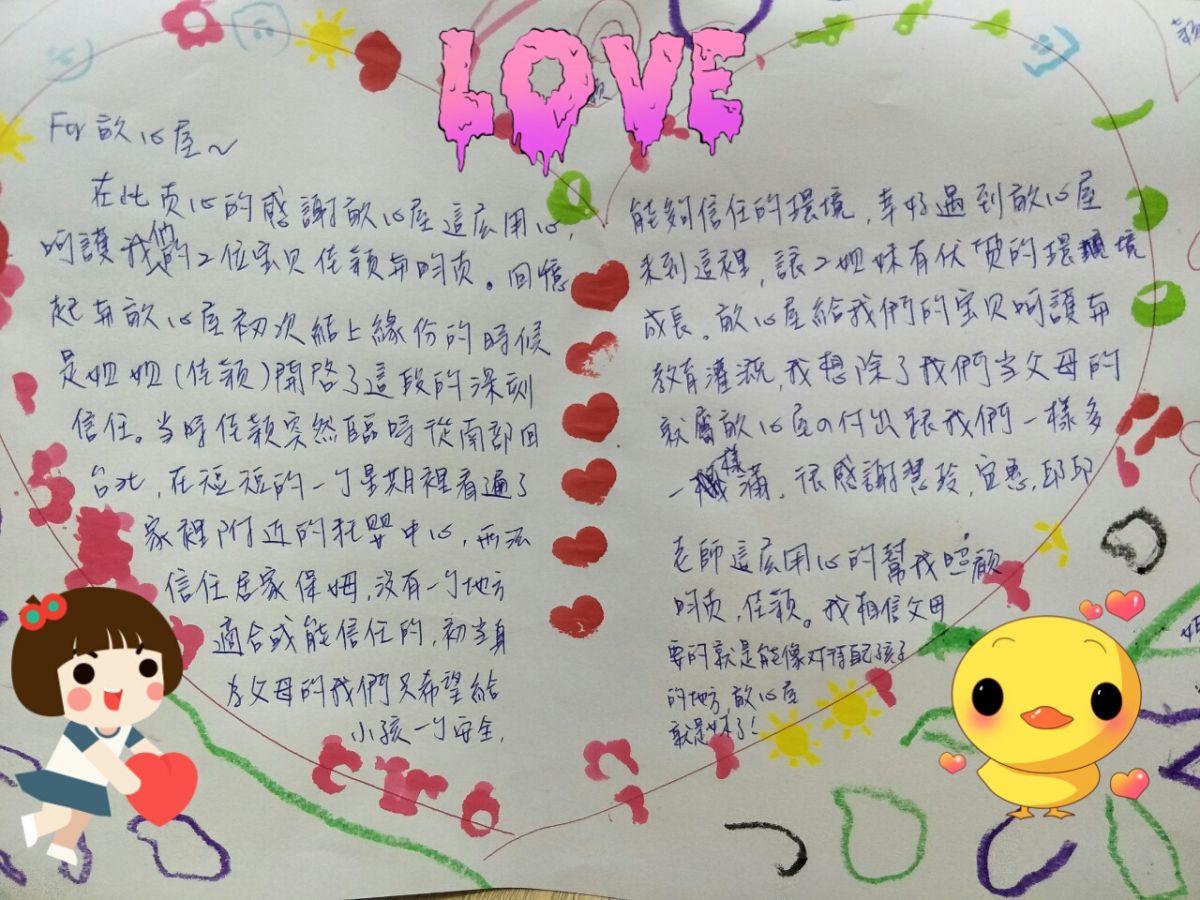 LOVE
For 歆心屋~
在此页心的感謝歆心屋這庅用心,
呵護我們的2位宝贝佳颖与昀页。回憶
起与歆心屋初次結上緣份的時候
是姐姐(佳颖)開啓了這段的深刻
信任。当時佳颖突然臨時從南部回
台北,在短短的一个星期裡看遍了
家裡附近的托嬰中心,無法
信任居家保姆,沒有一个地方
適合或能信任的,初当身
为父母的我們只希望給
小孩一个安全,
能夠信任的環境,幸好遇到歆心屋
来到這裡,讓2姐妹有优质的環境
成長。歆心屋給我們的宝贝呵護与
教育灌溉,我想除了我們当父母的
就屬歆心屋の付出跟我們一樣多
一樣滿,很感謝慧玲,宜恩,邱邱
老師這庅用心的幫我照顧
昀页,佳颖。我相信父母
要的就是能像对待自己孩子
的地方,歆心屋
就是妳了!